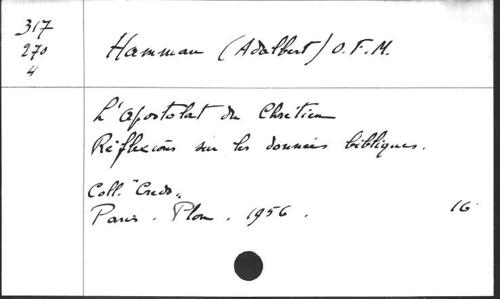 317
270
4
Hamman (Adalbert) O.F.M.
L'Apostolat du Chrétien
Réflexions sur les données bibliques.
Coll. "Credo"
Paris. Plon. 1956. 16